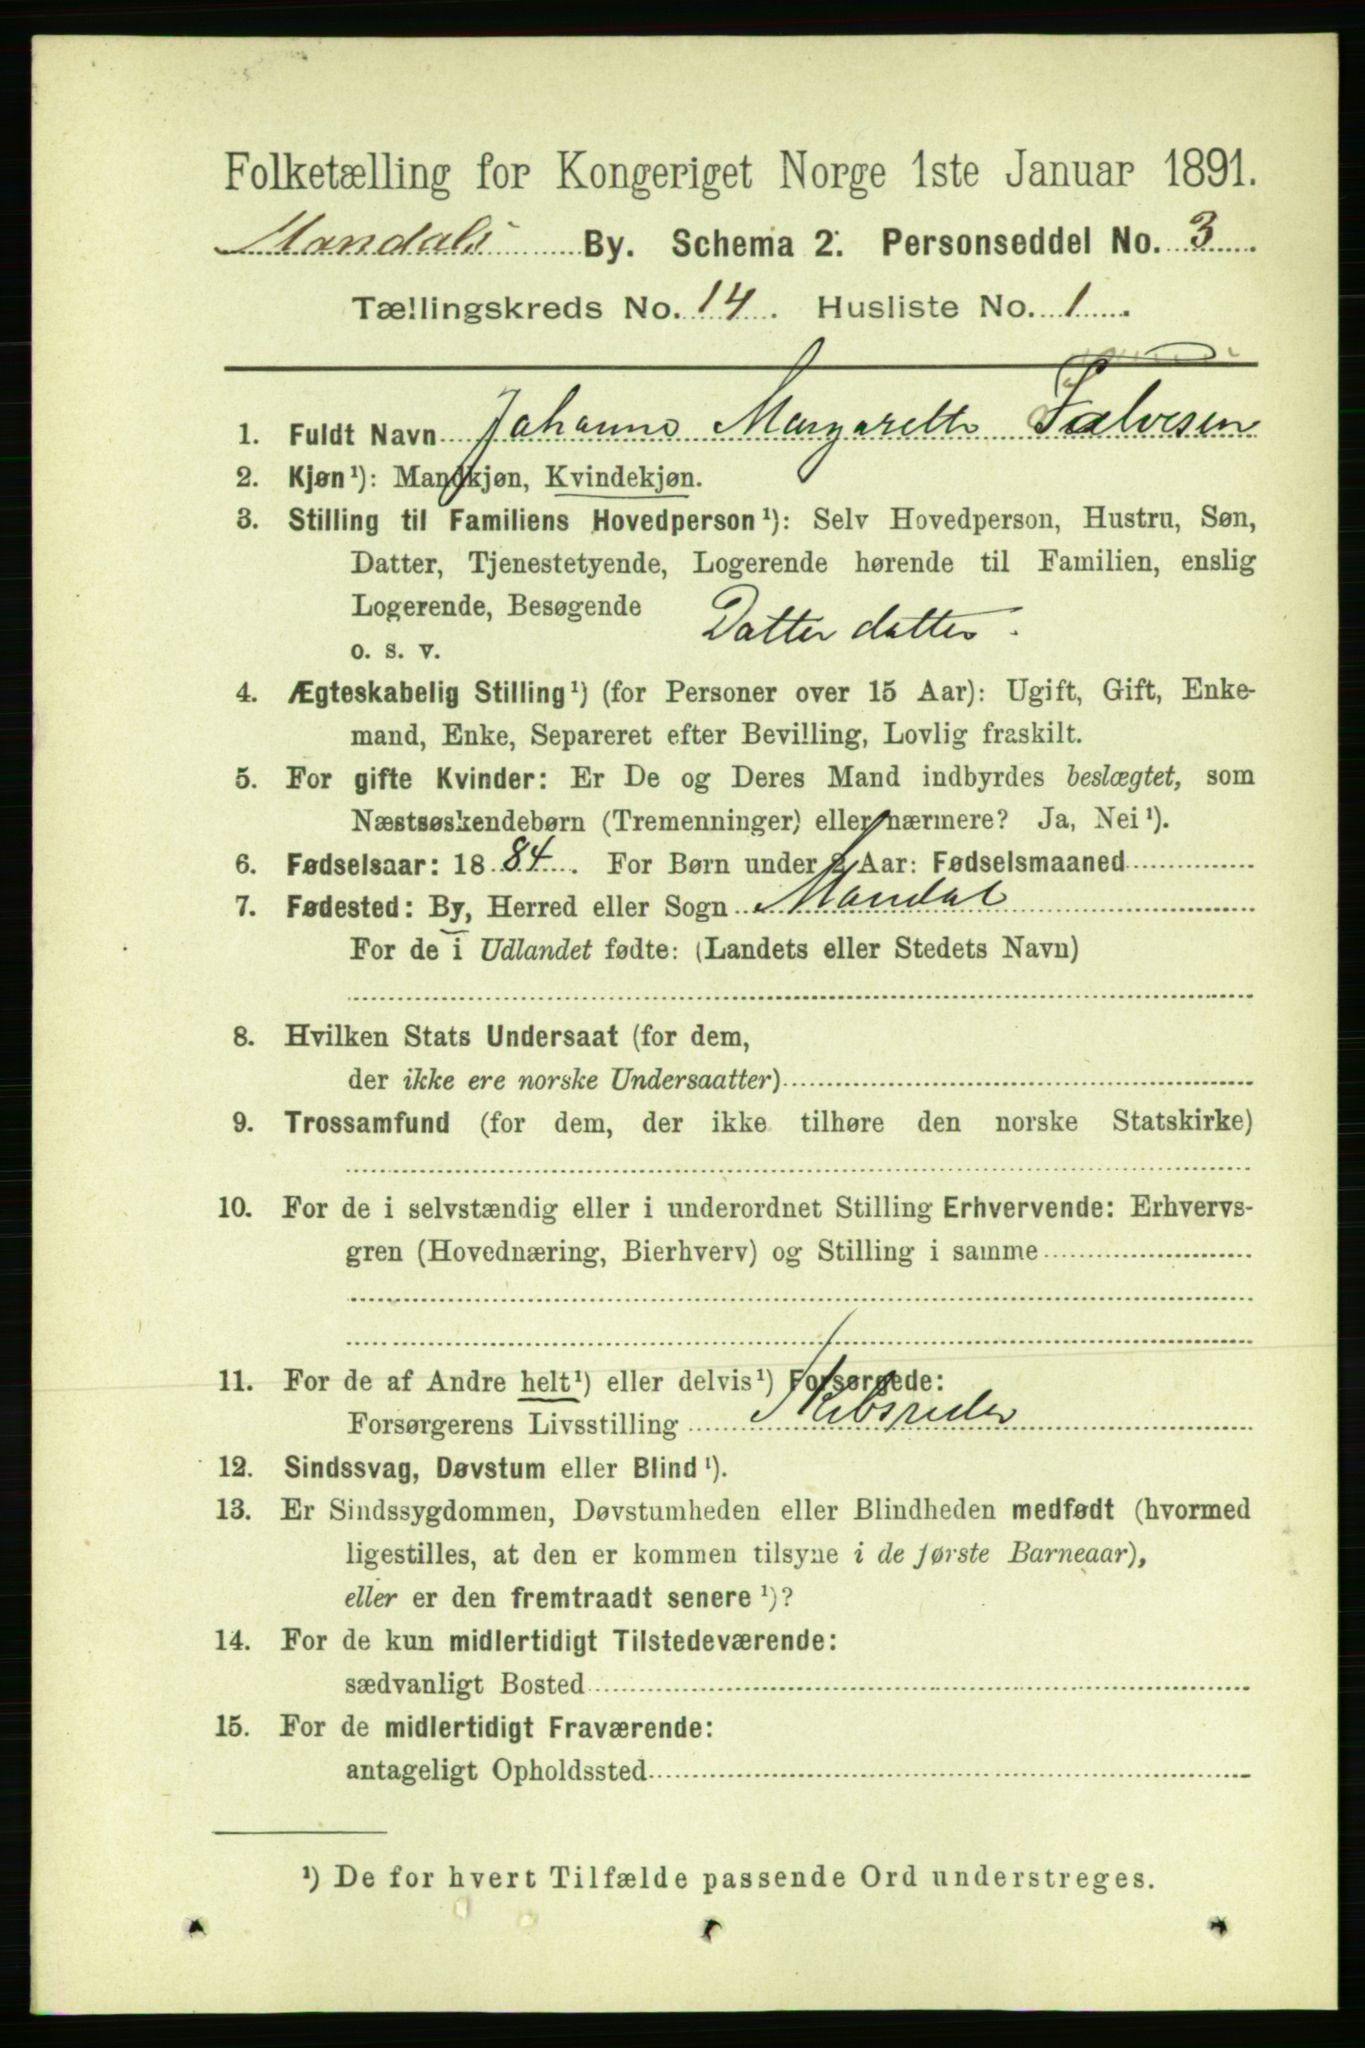 Folketælling for Kongeriget Norge 1ste Januar 1891.
Mandals By. Schema 2. Personseddel No. 3
Tællingskreds No. 14. Husliste No. 1.
1. Fuldt Navn Johanne Margarethe Salvesen
2. Kjøn¹): Mandkjøn, Kvindekjøn.
3. Stilling til Familiens Hovedperson¹): Selv Hovedperson, Hustru, Søn,
Datter, Tjenestetyende, Logerende hørende til Familien, enslig
Logerende, Besøgende Datter datter.
o. s. v.
4. Ægteskabelig Stilling¹) (for Personer over 15 Aar): Ugift, Gift, Enke-
mand, Enke, Separeret efter Bevilling, Lovlig fraskilt.
5. For gifte Kvinder: Er De og Deres Mand indbyrdes beslægtet, som
Næstsøskendebørn (Tremenninger) eller nærmere? Ja, Nei¹).
6. Fødselsaar: 1884. For Børn under 2 Aar: Fødselsmaaned
7. Fødested: By, Herred eller Sogn Mandal
For de i Udlandet fødte: (Landets eller Stedets Navn)
8. Hvilken Stats Undersaat (for dem,
der ikke ere norske Undersaatter)
9. Trossamfund (for dem, der ikke tilhøre den norske Statskirke)
10. For de i selvstændig eller i underordnet Stilling Erhvervende: Erhvervs-
gren (Hovednæring, Bierhverv) og Stilling i samme
11. For de af Andre helt¹) eller delvis¹) Forsørgede:
Forsørgerens Livsstilling Skibsreder
12. Sindssvag, Døvstum eller Blind¹).
13. Er Sindssygdommen, Døvstumheden eller Blindheden medfødt (hvormed
ligestilles, at den er kommen tilsyne i de første Barneaar),
eller er den fremtraadt senere¹)?
14. For de kun midlertidigt Tilstedeværende:
sædvanligt Bosted
15. For de midlertidigt Fraværende:
antageligt Opholdssted
¹) De for hvert Tilfælde passende Ord understreges.